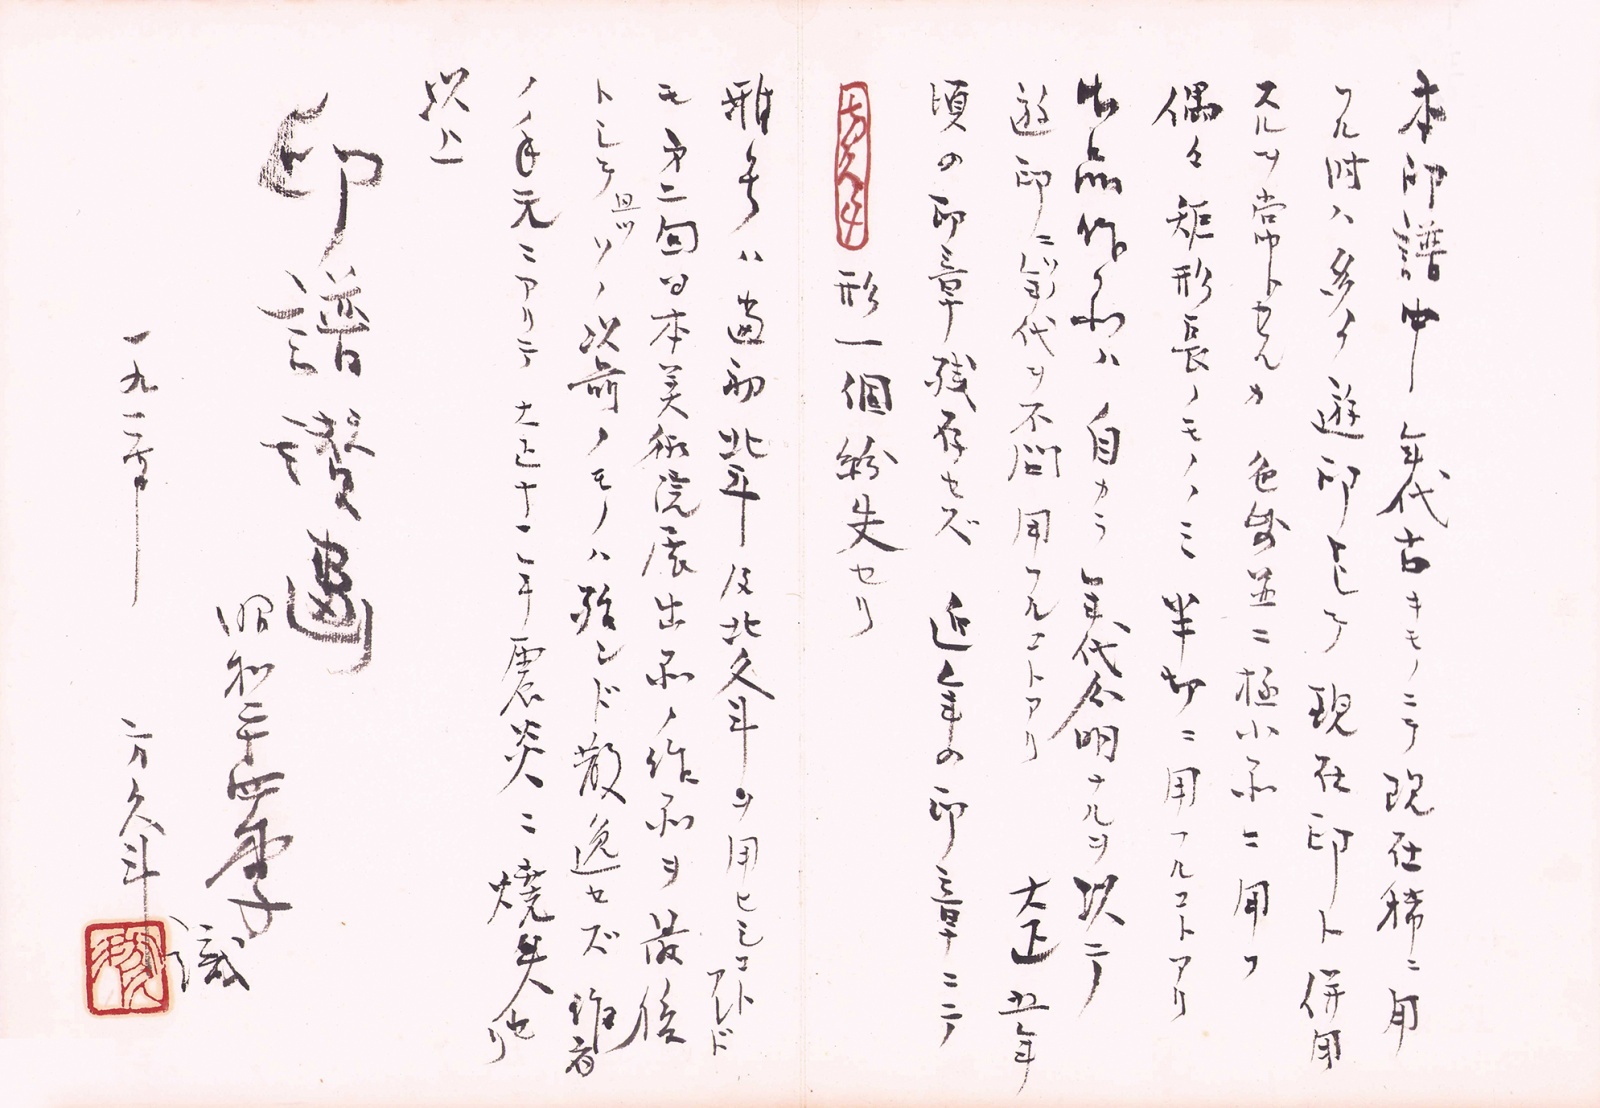 本印譜中 年代古キモノニテ現在稀ニ用
フル時ハ多ク遊印として現在印ト併用
スルヲ常トセルカ 色紙並ニ極小品ニ用フ
偶々矩形長ノモノミ半切ニ用フルコトアリ
出品作品ハ自カラ年代分明ナルヲ以テ
遊印ニハ年代ヲ不問用フルコトアリ 大正五年
頃の印章残存セズ 近年の印章ニテ
方久斗 形一個紛失セリ
雅号ハ当初北斗及北久斗ヲ用ヒシコトアレド
モ第二回日本美術院展出品ノ作品ヲ最後
トシテ且ツソノ以前ノモノハ殆ンド散逸セズ作者
ノ手元ニアリテ大正十二年震災ニ燒失セリ
以上
印譜
昭和三十四季
識
一九二
方久斗